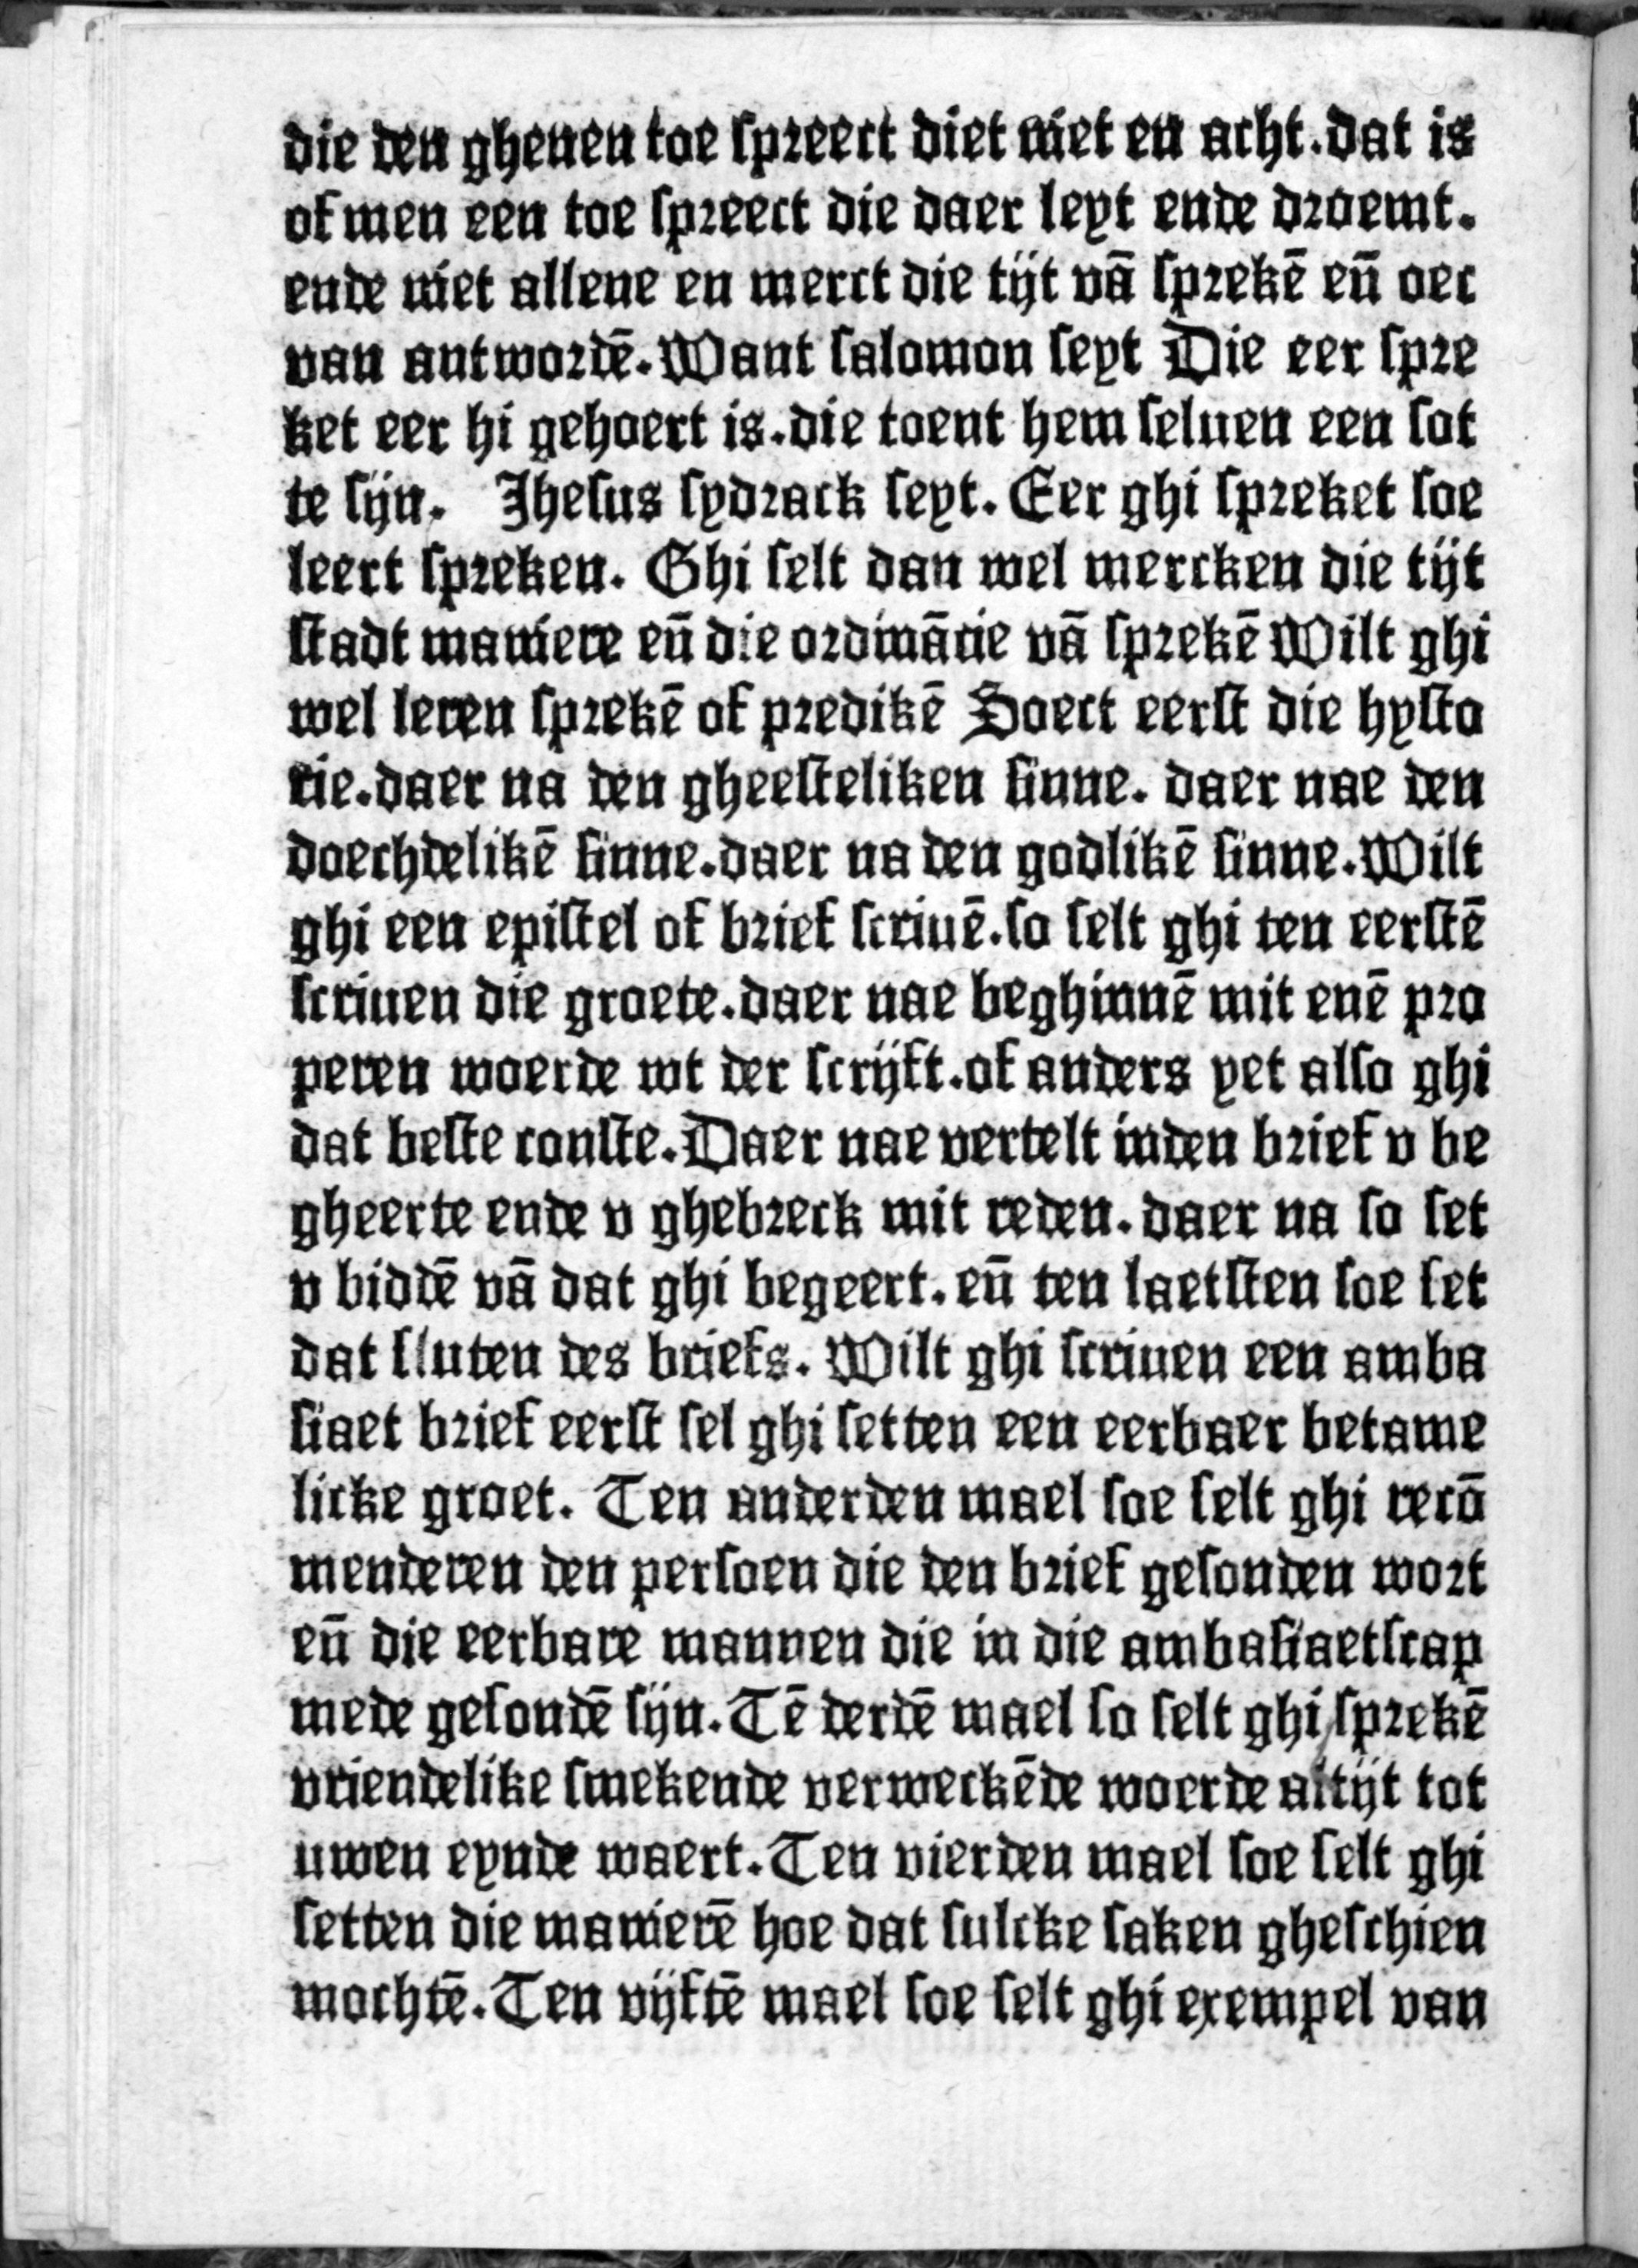 die den ghenen toe ſpreect diet niet en acht.dat is
of men een toe ſpreect die daer leyt ende droemt.
ende niet allene en merct die tijt vā ſprekē eñ oec
van antwordē.Want ſalomon ſeyt Die eer ſpre
ket eer hi gehoert is.die toent hem ſeluen een ſot
te ſijn. Jheſus ſydrack ſeyt. Eer ghi ſpreket ſoe
leert ſpreken. Ghi ſelt dan wel mercken die tijt
ſtadt maniere eñ die ordinācie vā ſprekē Wilt ghi
wel leren ſprekē of predikē Soect eerſt die hyſto
rie.daer na den gheeſteliken ſinne. daer nae den
doechdelikē ſinne.daer na den godlikē ſinne.Wilt
ghi een epiſtel of brief ſcriuē.ſo ſelt ghi ten eerſtē
ſcriuen die groete.daer nae beghinnē mit enē pro
peren woerde wt der ſcrijft.of anders yet alſo ghi
dat beſte conſte.Daer nae vertelt inden brief v be
gheerte ende v ghebreck mit reden. daer na ſo ſet
v biddē vā dat ghi begeert. eñ ten laetſten ſoe ſet
dat ſluten des briefs. Wilt ghi ſcriuen een amba
ſiaet brief eerſt ſel ghi ſetten een eerbaer betame
licke groet. Ten anderden mael ſoe ſelt ghi recō
menderen den perſoen die den brief geſonden wort
eñ die eerbare mannen die in die ambaſiaetſcap
mede geſondē ſijn.Tē derdē mael ſo ſelt ghi ſprekē
vriendelike ſmekende verweckēde woerde altijt tot
uwen eynde waert.Ten vierden mael ſoe ſelt ghi
ſetten die manierē hoe dat ſulcke ſaken gheſchien
mochtē.Ten vijftē mael ſoe ſelt ghi exempel van